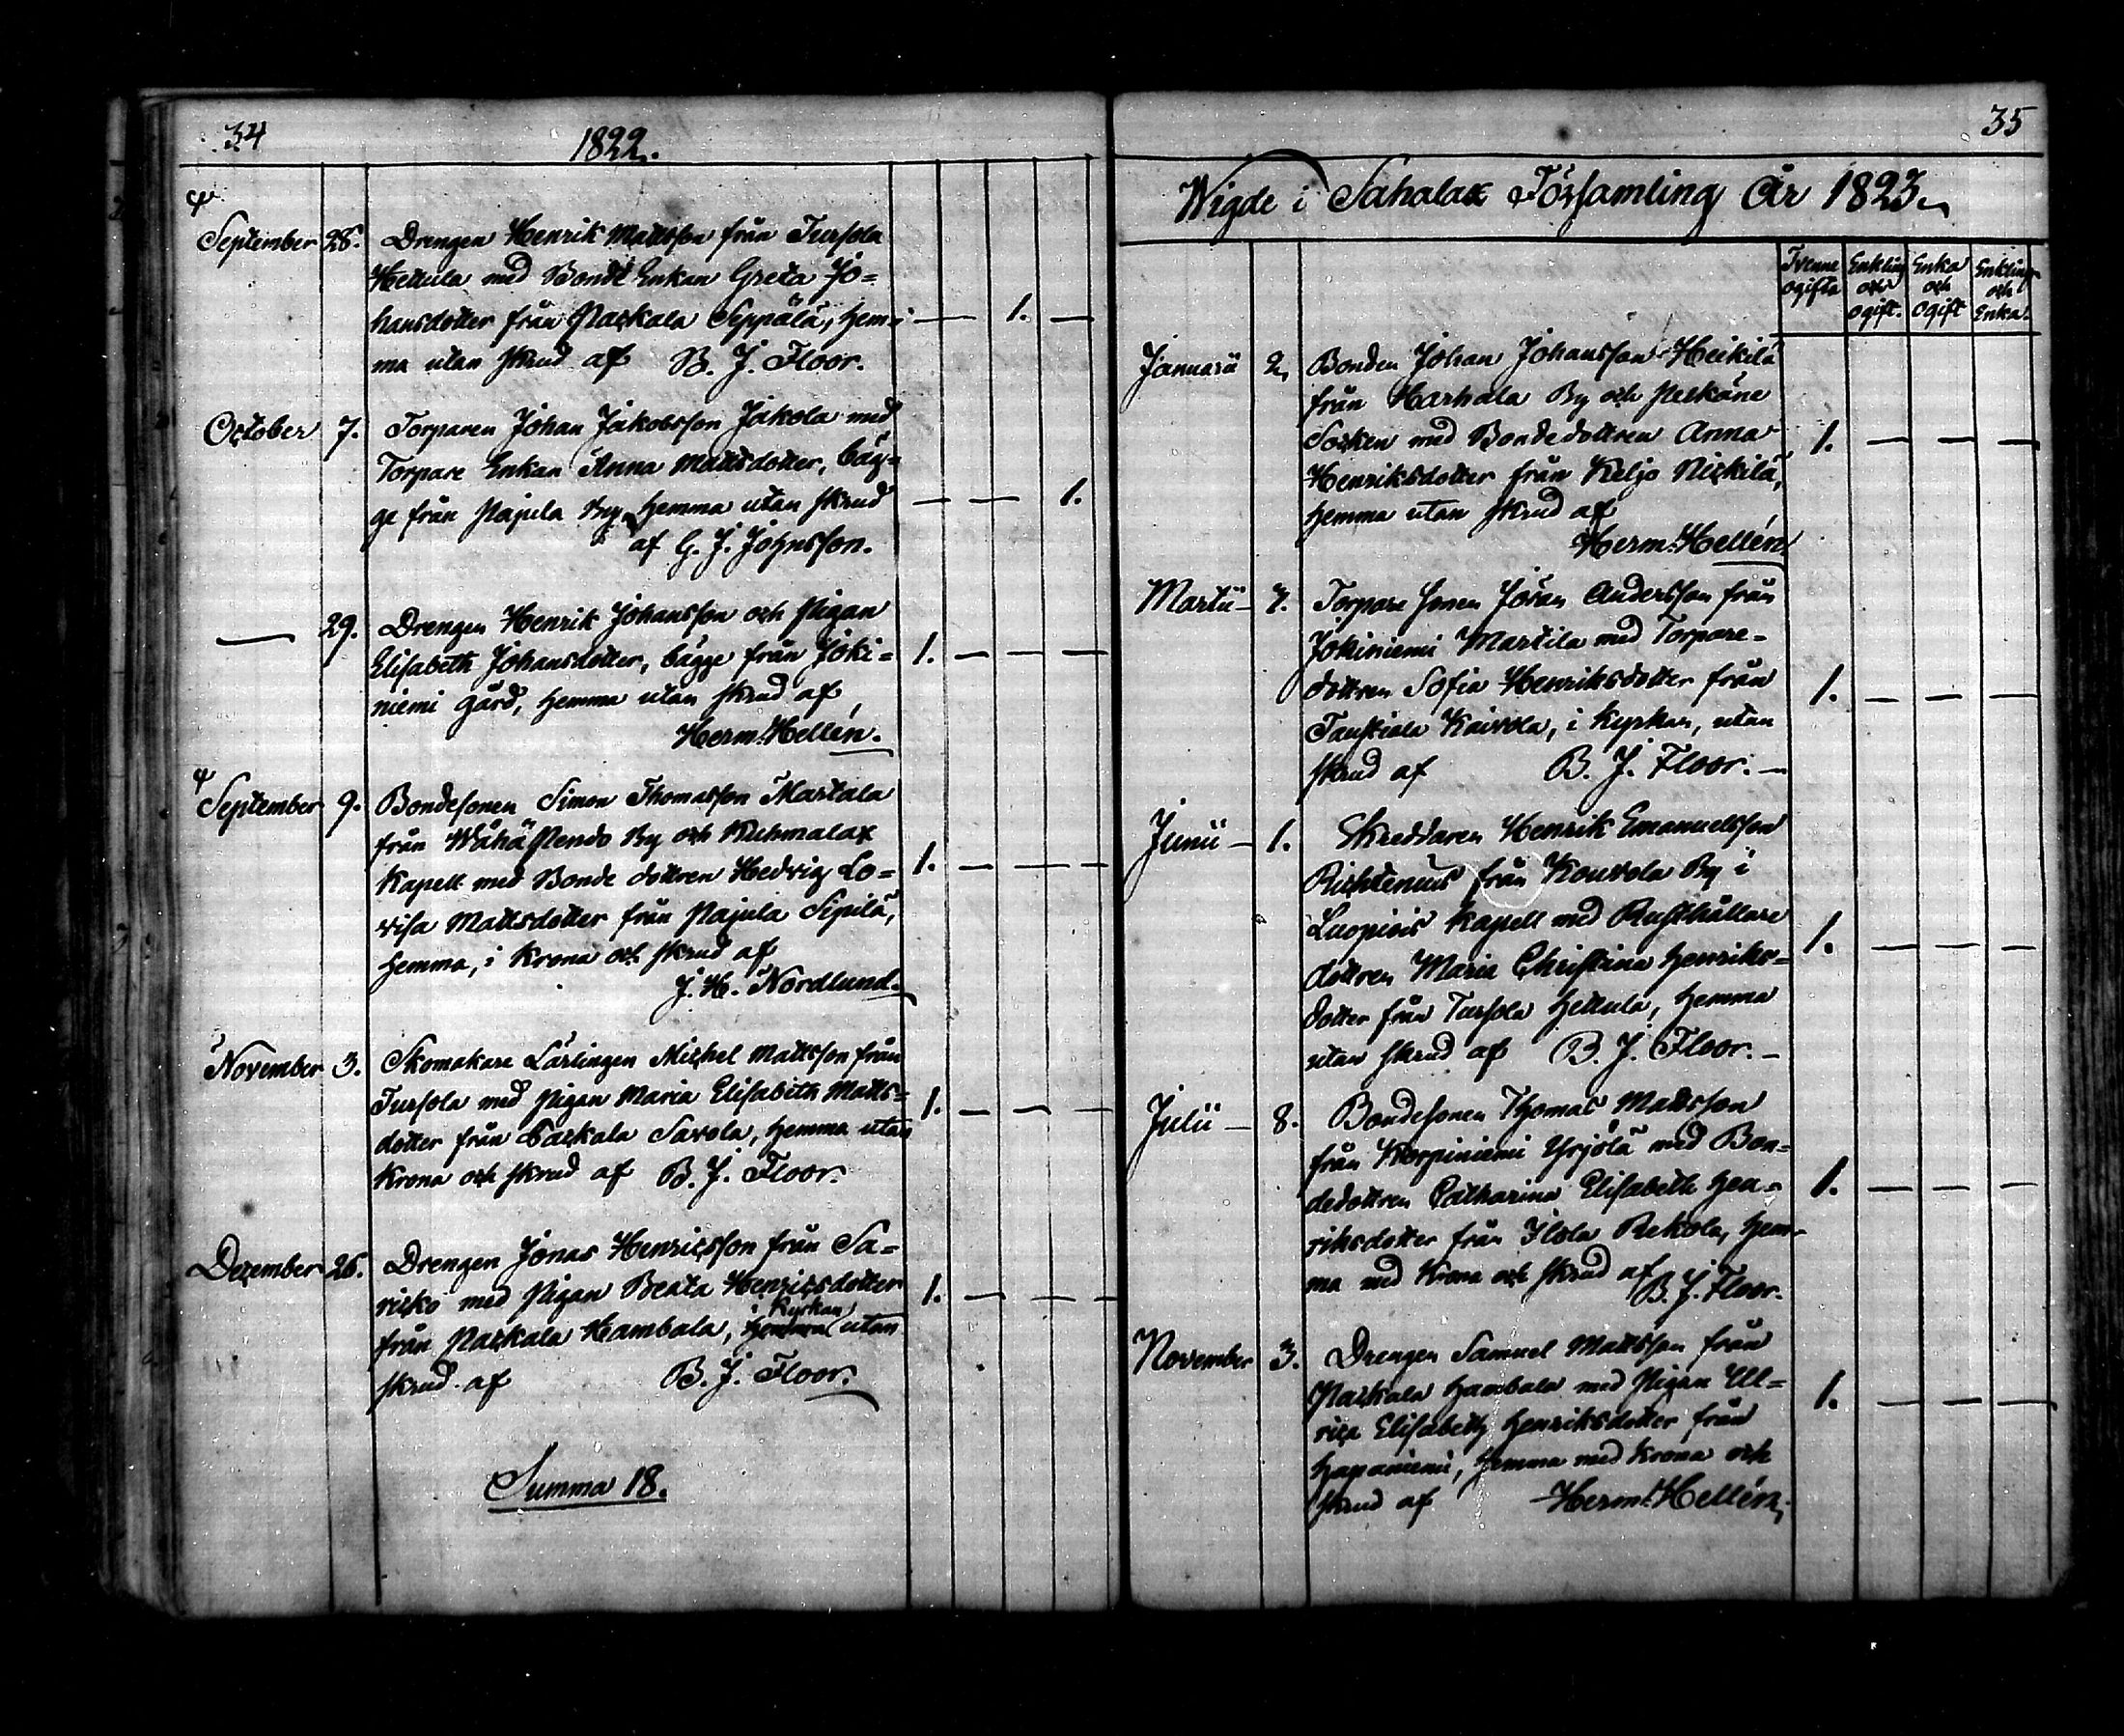 34
1822.
September 28. Drengen Henrik Mattsson från Tursola
Hettula med Bonde Enkan Greta Jo=
hansdotter från Packala Seppälä, hem= — 1. —
ma utan skrud af B. J. Floor.
October 7. Torparen Johan Jakobsson Jakola med
Torpare Enkan Anna Mattsdotter, bäg=
ge från Pajula By, hemma utan skrud — — 1.
af G. J. Johnsson.
— 29. Drengen Henrik Johansson och Pigan
Elisabeth Johansdotter, bägge från Joki= 1. — — —
niemi gård, hemma utan skrud af
Herm: Hellén.
September 9. Bondesonen Simon Thomasson Martala
från Wähä Pendo By och Kuhmalax
Kapell med Bonde dottren Hedvig Lo= 1. — — —
visa Mattsdotter från Pajula Sipilä,
hemma, i Krona och skrud af
J. H. Nordlund.
November 3. Skomakare Lärlingen Michel Mattsson från
Tursola med Pigan Maria Elisabeth Matts= 1. — — —
dotter från Packala Savola, hemma utan
Krona och skrud af B. J. Floor.
December 26. Drengen Jonas Henricsson från Sa=
ricko med Pigan Beata Henricsdotter 1. — — —
i Kyrkan
från Packala Hambala, hemma utan
skrud af B. J. Floor.
Summa 18.
35
Wigde i Sahalax Församling År 1823.
Tvenne Enkling Enka Enkling
ogifta och och och
ogift. Ogift Enka.
Januarii 2, Bonden Johan Johansson Heikilä
från Harhala By och Pelkäne
Socken med Bondedottren Anna 1. — — —
Henriksdotter från Keljo Nickilä,
hemma utan skrud af
Herm: Hellén.
Martii — 7. Torpare sonen Jöran Andersson från
Jokiniemi Martila med Torpare=
dottren Sofia Henriksdotter från 1. — — —
Taustiala Kaivola, i Kyrkan, utan
skrud af B. J. Floor. —
Junii — 1. Skreddaren Henrik Emanuelsson
Richtenius från Kouvola By i
Luopiois Kapell med Rusthållare 1. — — —
dottren Maria Christina Henriks=
dotter från Tursola Hettula, hemma
utan skrud af B. J. Floor. —
Julii — 8. Bondesonen Thomas Mattsson
från Korpiniemi Yrjölä med Bon=
dedottren Catharina Elisabeth Hen= 1. — — —
riksdotter från Ilola Rekola, hem=
ma med Krona och skrud af
B. J. Floor.
November 3. Drengen Samuel Mattsson från
Packala Hambala med Pigan Ul= 1. — — —
rica Elisabeth Henriksdotter från
Hapaniemi, hemma med Krona och
skrud af Herm: Hellén.